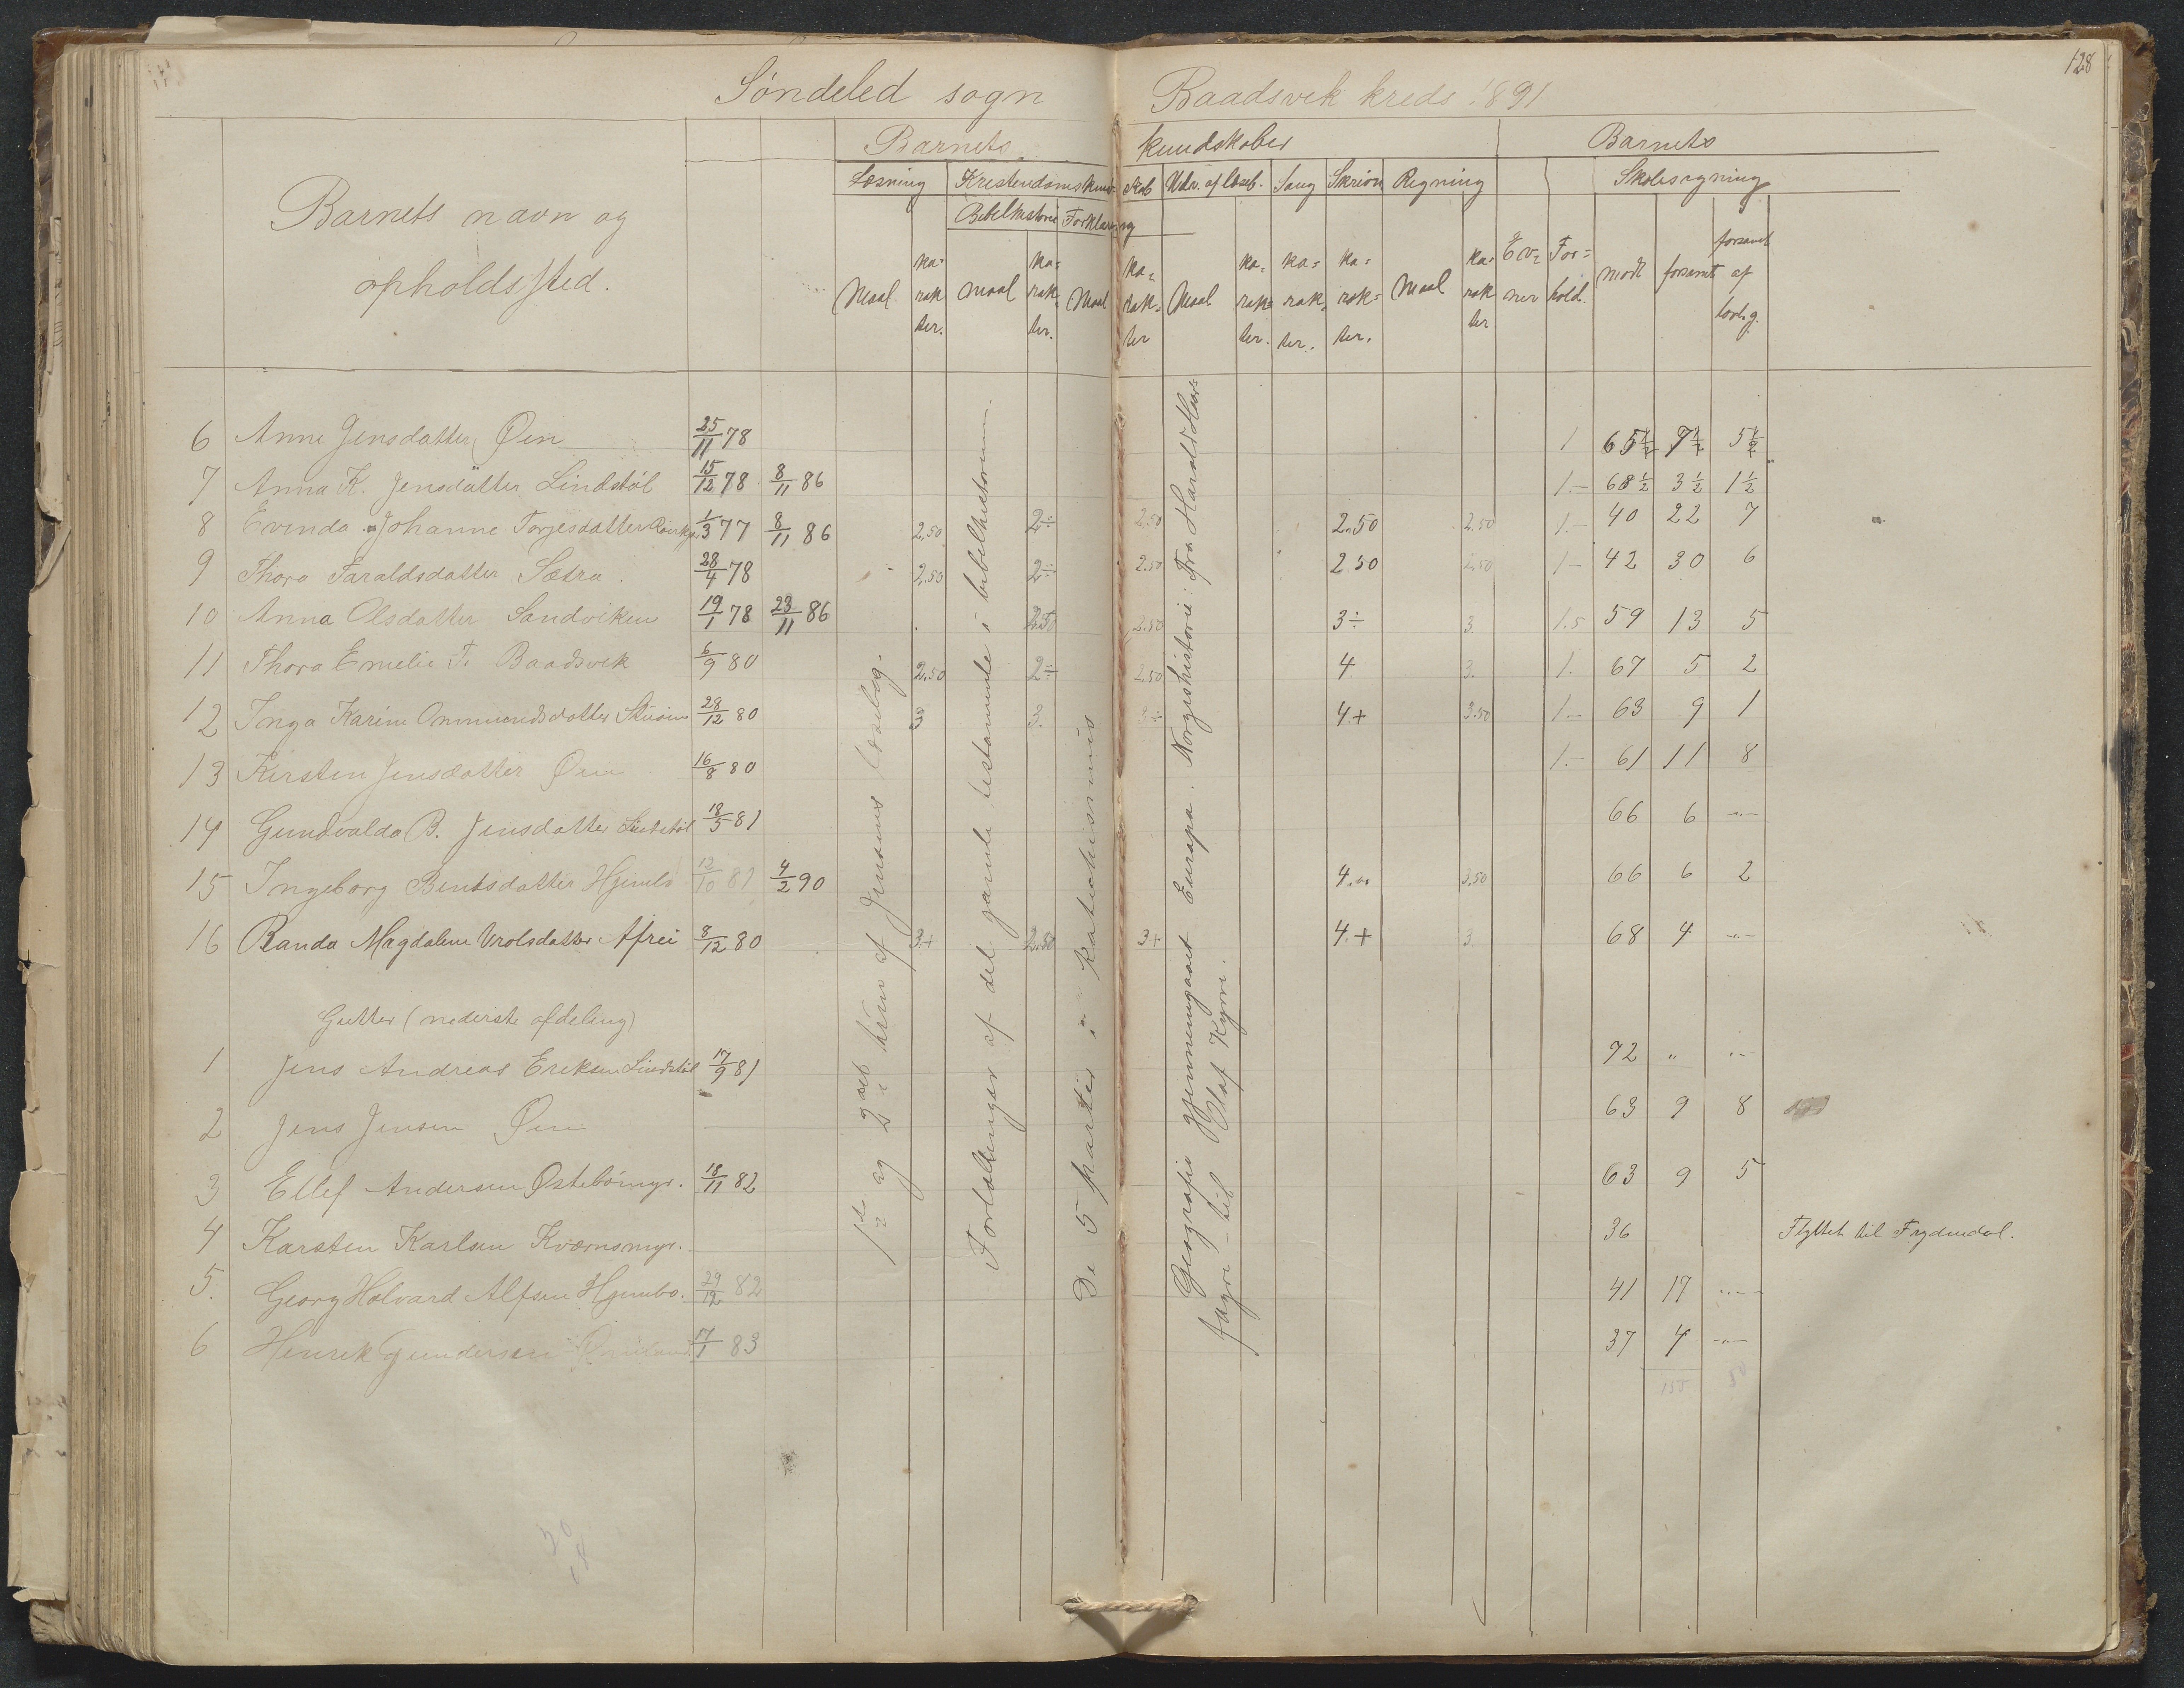 128
Søndeled sogn Baadsvik kreds 1891
Barnets navn og
opholdssted.
Barnets kundskaber
Barnets
Læsning Kristendomskund-skab Udv. af læseb. Sang Skrivn Regning Skolesøgning
Bibelhistorie Forklaring
Maal ka-rak-ter. maal ka-rak-ter. Maal ka-rak-ter Maal ka-rak-ter. ka-rak-ter. ka-rak-ter. Maal ka-rak-ter Ev-ner For-hold. mødt forsømt forsømt af lovlig.
6 Anne Jensdatter, Øen 25/11 78 1 65½ 7½ 5½
7 Anna K. Jensdatter Lindstøl 15/12 78 8/11 86 1.- 68½ 3½ 1½
8 Evinda Johanne Torjesdatter 1/3 77 8/11 86 2,50 2÷ 2,50 2.50 2.50 1.- 40 22 7
9 Thora Taraldsdatter Sætra. 28/4 78 2,50 2÷ 2.50 2.50 2,50 1- 42 30 6
10 Anna Olsdatter Sandviken 19/1 78 23/11 86 2.50 2.50 3÷ 3. 1.5 59 13 5
11 Thora Emelie T. Baadsvik 6/9 80 2,50 2÷ 2,50 4 3. 1. 67 5 2
12 Inga Karine Ommundsdatter 28/12 80 3 3. 3÷ 4+ 3.50 1- 63 9 1
13 Kirsten Jensdatter Øen 16/8 80 1.- 61 11 8
14 Gundvalda B. Jensdatter Lindstøl 18/5 81 66 6 -"-
15 Ingeborg Bentsdatter Hjembo 12/10 81 4/2 90 4,00 3,50 66 6 2
16 Randa Magdalene Vrolsdatter Afrei 8/12 80 3+ 2,50 3+ 4.+ 3. 68 4 -"-
Gutter (nederste afdeling)
1 Jens Andreas Eriksen Lindstøl 17/9 81 72 " "-
2 Jens Jensen Øen - 63 9 8
3 Ellef Andersen Østebömyr. 18/11 82 63 9 5
4 Karsten Karlsen Kværnsmyr. 36 Flyttet til Frydendal.
5. Georg Halvard Alfsen Hjembo. 29/12 82 41 17 -"-
6 Henrik Gundersen 17/1 83 37 4 -"-
155 30
1ste og 2det trin af Jensens læsebog.
Fortællinger af det gamle testamente i bibelhistorien.
De 5 parter i katechismus
Geografie gjennemgaaet Europa. Norgeshistorie: Fra Harald Haar-
fagre - til Olaf Kyrre.